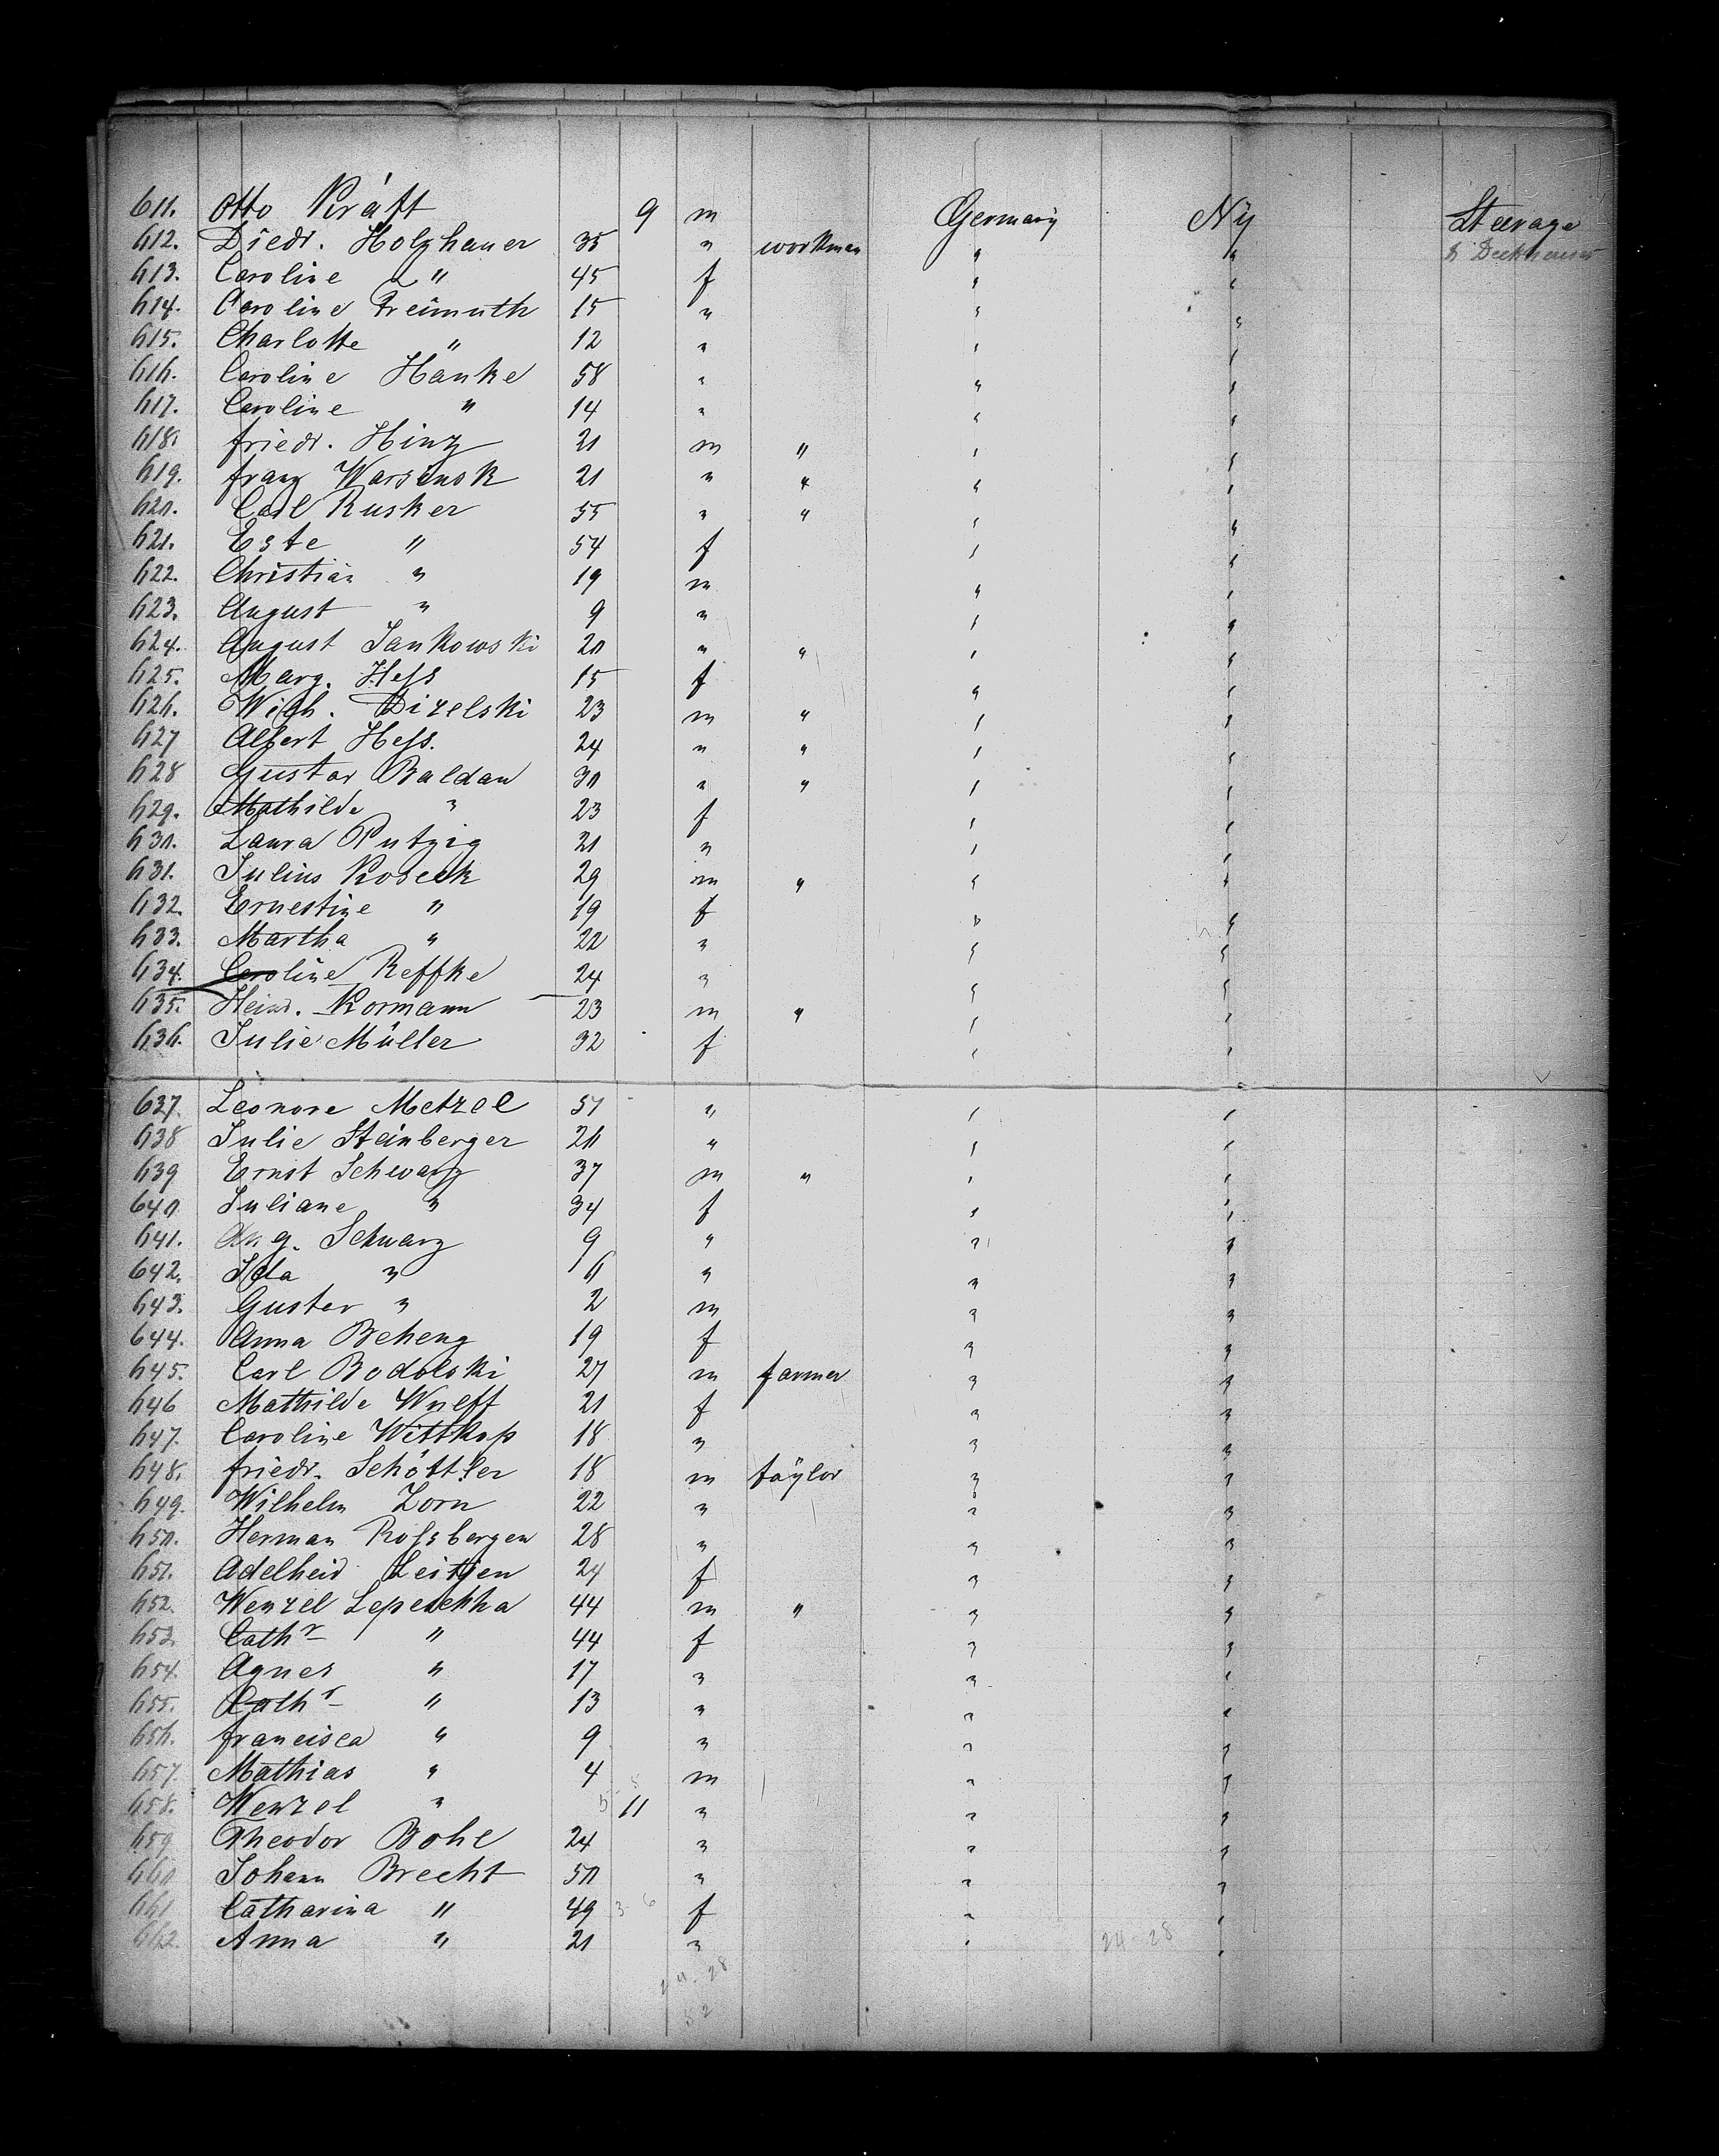 611. Otto Kraft 9 m Germany Ny Steerage
612. Diedr. Holzhauer 35 " workman " "
613. Caroline " 45 f " "
614. Caroline Freimuth 15 " " "
615. Charlotte " 12 " " "
616. Caroline Hanke 58 " " "
617. Caroline " 14 " " "
618. friedr. Hinz 21 m " " "
619. franz Warsinsk 21 " " " "
620. Carl Rusker 55 " " " "
621. Este " 54 f " "
622. Christian " 19 m " "
623. August " 9 " " "
624. August Jankowski 20 " " " "
625. Marg. Hess 15 f " "
626. Wilh. Dizelski 23 m " " "
627 Albert Hess. 24 " " " "
628 Gustav Baldau 30 " " " "
629. Mathilde " 23 f " "
630. Laura Putzig 21 " " "
631. Julius Koseck 29 m " " "
632. Ernestine " 19 f " "
633. Martha " 22 " " "
634. Caroline Reffke 24 " " "
635. Heinr. Kormann 23 m " " "
636. Julie Müller 32 f " "
637. Leonore Metzel 51 " " "
638 Julie Steinberger 20 " " "
639 Ernst Schwarz 37 m " " "
640 Juliane " 34 f " "
641. Aug. Schwarz 9 " " "
642. Ida " 6 " " "
643. Gustav " 2 m " "
644. Anna Beheng 19 f " "
645. Carl Bodolski 27 m farmer " "
646 Mathilde Wulff 21 f " "
647. Caroline Wittkop 18 " " "
648. friedr. Schöttler 18 m taylor " "
649. Wilhelm Zorn 22 " " "
650. Herman Rossbergen 28 " " "
651. Adelheid Leitjen 24 f " "
652. Wenzel Lepeschka 44 m " " "
653. Cathr " 44 f " "
654. Agnes " 17 " " "
655. Cathr " 13 " " "
656. francisca " 9 " " "
657. Mathias " 4 m " "
658. Wenzel " 11 " " "
659. Theodor Bohl 24 " " "
660 Johann Brecht 50 " " "
661 Catharina " 49 3 6 f " "
662. Anna " 21 " " 24-28 "